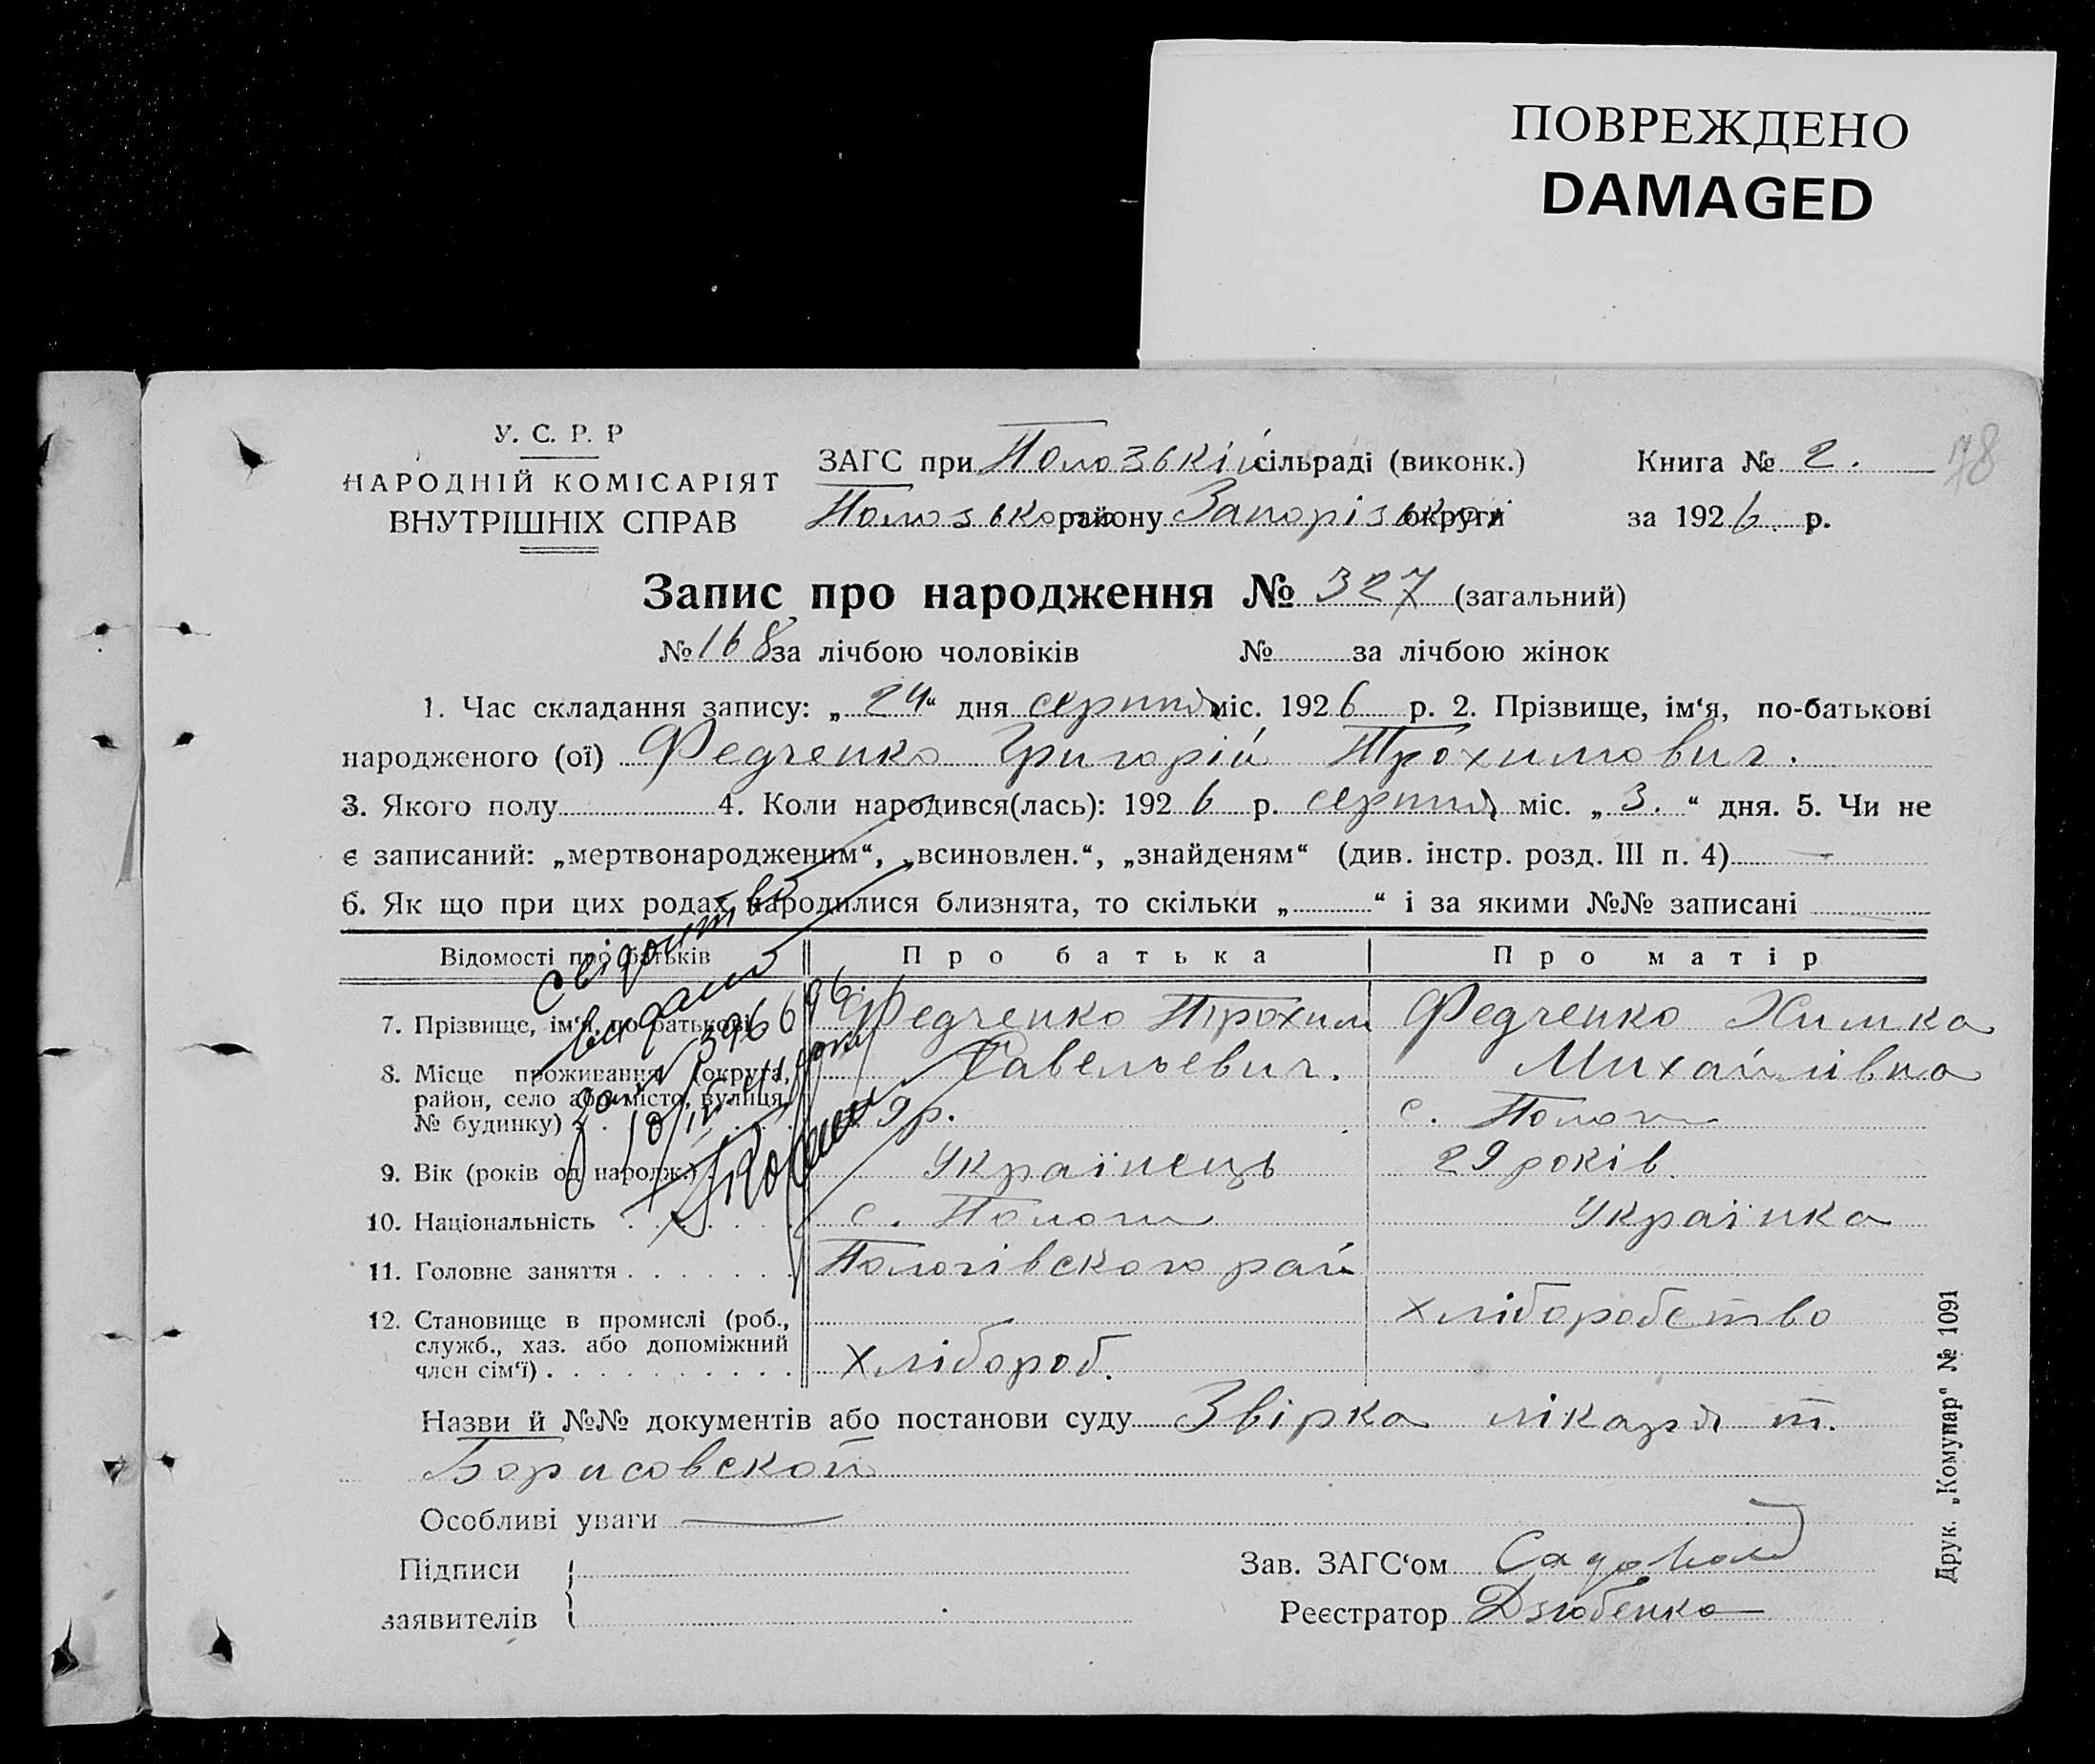 ПОВРЕЖДЕНО
DAMAGED
У. С. Р. Р
НАРОДНІЙ КОМІСАРІЯТ
ВНУТРІШНІХ СПРАВ
ЗАГС при Полозькій сільраді (виконк.)
Полозького району Запорізької округи
Книга № 2.
за 1926 р.
78
Запис про народження № 327 (загальний)
№ 168 за лічбою чоловіків № за лічбою жінок
1. Час складання запису: „24“ дня серпня міс. 1926 р. 2. Прізвище, ім‘я, по-батькові
народженого (ої) Федченко Григорій Трохимович.
3. Якого полу 4. Коли народився(лась): 1926 р. серпня міс. „3.“ дня. 5. Чи не
є записаний: „мертвонародженим“, „всиновлен.“, „знайденям“ (див. інстр. розд. III п. 4) —
6. Як що при цих родах народилися близнята, то скільки „ “ і за якими №№ записані
Відомості про батьків Про батька Про матір
7. Прізвище, ім‘я, по батькові Федченко Трохим Федченко Химка
8. Місце проживання (округа, Савельевич. Михайлівна
район, село або місто, вулиця, 9р. с. Пологи
№ будинку)
9. Вік (років од народж.) Українець 29 років
10. Національність с. Пологи Українка
11. Головне заняття Пологівского рай
12. Становище в промислі (роб., хліборобство
служб., хаз. або допоміжний
член сім‘ї) хлібороб.
свідоцтво
видано
Назви й №№ документів або постанови суду Звірка лікаря т.
Борисовской
Особливі уваги —
Підписи
заявителів
Зав. ЗАГС‘ом
Реєстратор Дзюбенко
Друк. „Комунар“ № 1091